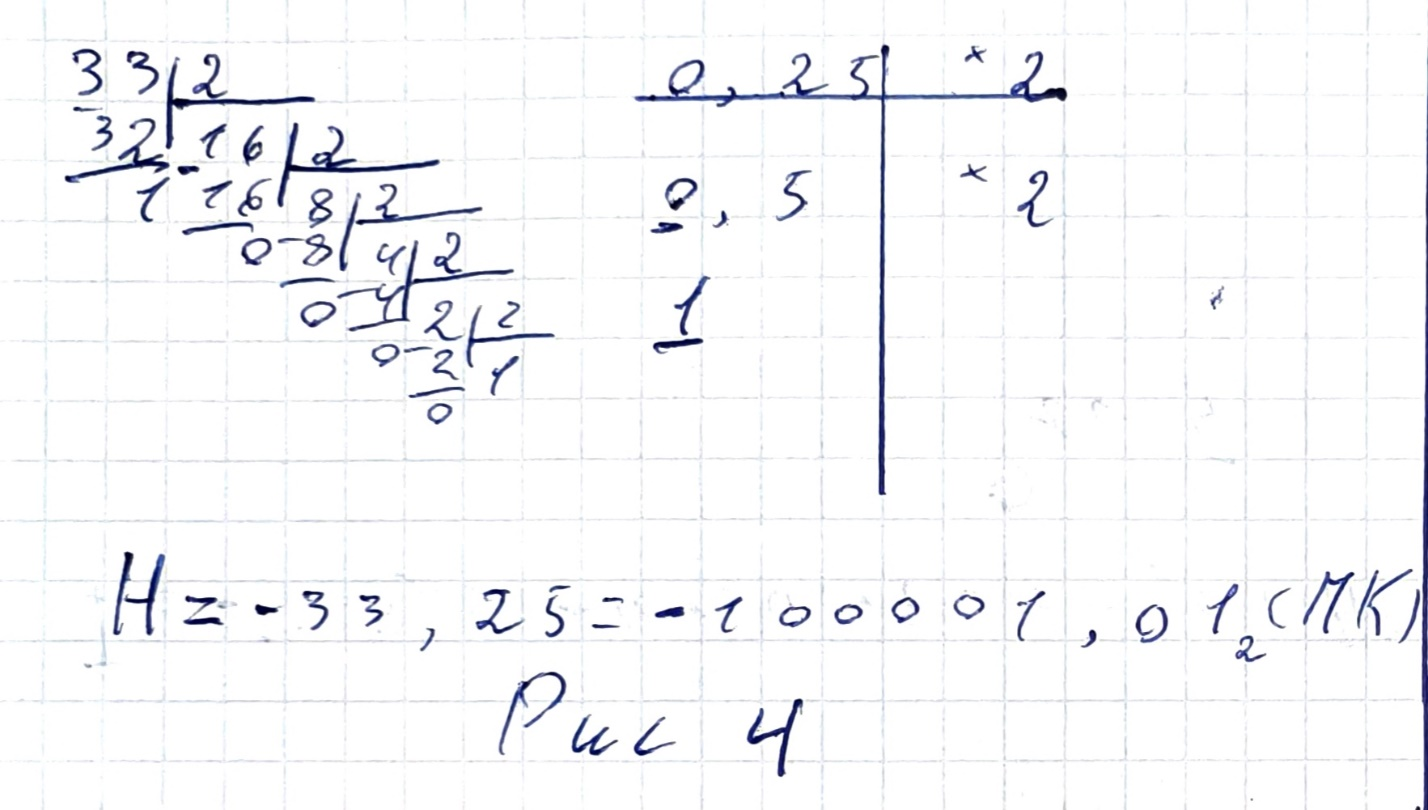 33 2
32 16 2
1 16 8 2
0 -8 4 2
0 -4 2 2
0 -2 1
0
0,25 × 2
0,5 × 2
1
H = -33,25 = -100001,01₂ (ПК)
Рис 4